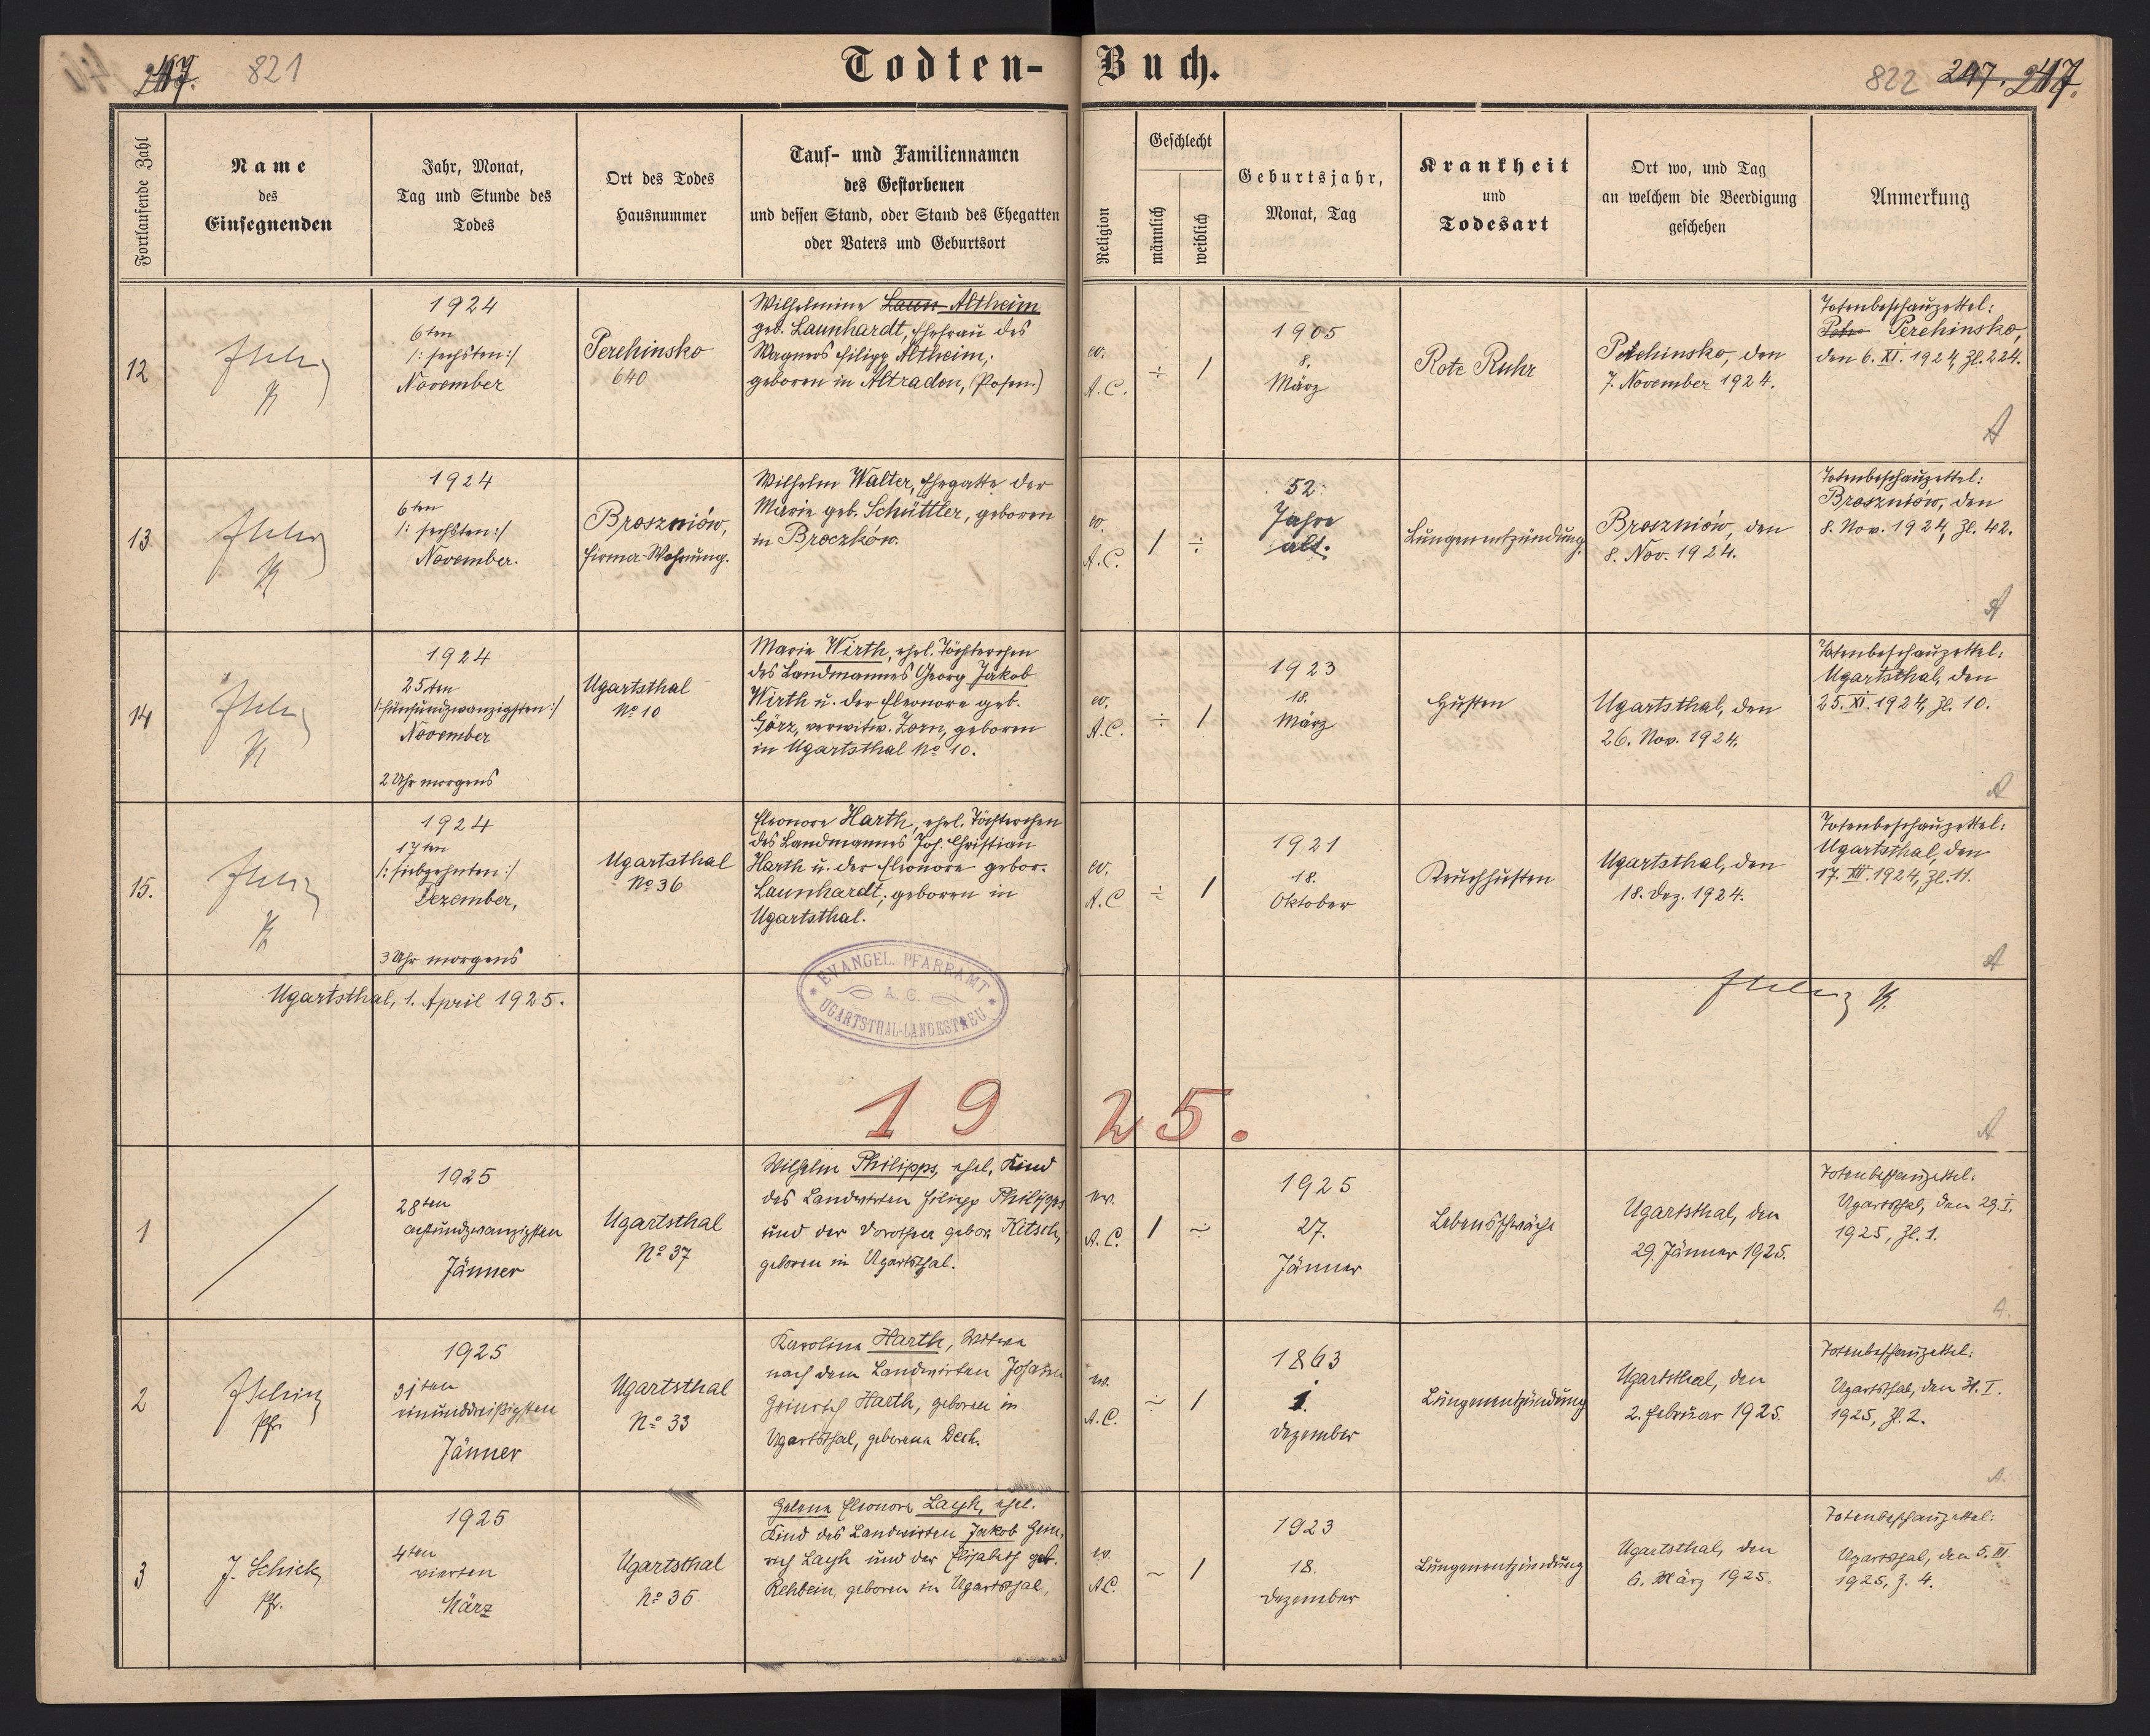 821
Todten-
Buch.
822 247. 247.
Fortlaufende Zahl
Name
des
Einsegnenden
Jahr, Monat,
Tag und Stunde des
Todes
Ort des Todes
Hausnummer
Tauf- und Familiennamen
des Gestorbenen
und dessen Stand, oder Stand des Ehegatten
oder Vaters und Geburtsort
Religion
Geschlecht
männlich
weiblich
Geburtsjahr,
Monat, Tag
Krankheit
und
Todesart
Ort wo, und Tag
an welchem die Beerdigung
geschehen
Anmerkung
12
1924
6ten
/: sechsten :/
November
Perehinsko
640
Wilhelmine Laun Altheim
geb. Launhardt, Ehefrau des
Wagners Filipp Altheim;
geboren in Altradon, (Posen.)
ev.
A.C.
÷
1
1905
8.
März
Rote Ruhr
Perehinsko, den
7. November 1924.
Totenbeschauzettel:
Perehinsko,
den 6. XI. 1924, Zl. 224.
A
13
1924
6ten
/: sechsten :/
November.
Broszniów,
Firma-Wohnung.
Wilhelm Walter, Ehegatte der
Marie geb. Schüttler, geboren
in Broczków.
ev.
A.C.
1
÷
52
Jahre
alt.
Lungenentzündung
Broszniów, den
8. Nov. 1924.
Totenbeschauzettel:
Broszniów, den
8. Nov. 1924, Zl. 42.
A
14
1924
25ten
/: fünfundzwanzigsten :/
November
2 Uhr morgens
Ugartsthal
No 10
Marie Wirth, ehel. Töchterchen
des Landmannes Georg Jakob
Wirth u. der Eleonore geb.
Görz, verwitw. Zorn, geboren
in Ugartsthal No 10.
ev.
A.C.
÷
1
1923
18.
März
Husten
Ugartsthal, den
26. Nov. 1924.
Totenbeschauzettel:
Ugartsthal, den
25. XI. 1924, Zl. 10.
A
15.
1924
17ten
/: siebzehnten :/
Dezember,
3 Uhr morgens
Ugartsthal
No 36
Eleonore Harth, ehel. Töchterchen
des Landmannes Joh. Christian
Harth u. der Eleonore gebor.
Launhardt; geboren in
Ugartsthal.
ev.
A.C
÷
1
1921
18.
Oktober
Keuchhusten
Ugartsthal, den
18. Dez. 1924.
Totenbeschauzettel:
Ugartsthal, den
17. XII. 1924, Zl. 11.
A
Ugartsthal, 1. April 1925.
EVANGEL. PFARRAMT
A. C.
UGARTSTHAL-LANDESTREU
1925.
A
1
1925
28ten
achtundzwanzigsten
Jänner
Ugartsthal
No 37
Wilhelm Philipps, ehel. Kind
des Landwirten Filipp Philipps
und der Dorothea gebor. Kitsch,
geboren in Ugartsthal.
ev.
A.C.
1
÷
1925
27.
Jänner
Lebensschwäche
Ugartsthal, den
29. Jänner 1925.
Totenbeschauzettel:
Ugartsthal, den 29. I.
1925, Zl. 1.
A.
2
Pfr.
1925
31ten
einunddreißigsten
Jänner
Ugartsthal
No 33
Karoline Harth, Witwe
nach dem Landwirten Johann
Heinrich Harth, geboren in
Ugartsthal, geborene Dech.
ev.
A.C.
÷
1
1863
1.
Dezember
Lungenentzündung
Ugartsthal, den
2. Februar 1925.
Totenbeschauzettel:
Ugartsthal, den 31. I.
1925, Zl. 2.
A.
3
J. Schick,
Pfr.
1925
4ten
vierten
März
Ugartsthal
No 35
Helene Eleonore Layh, ehel.
Kind des Landwirten Jakob Hein-
rich Layh und der Elisabeth geb.
Rehbein, geboren in Ugartsthal,
ev.
A.C.
~
1
1923
18.
Dezember
Lungenentzündung
Ugartsthal, den
6. März 1925.
Totenbeschauzettel:
Ugartsthal, den 5. III.
1925, Z. 4.